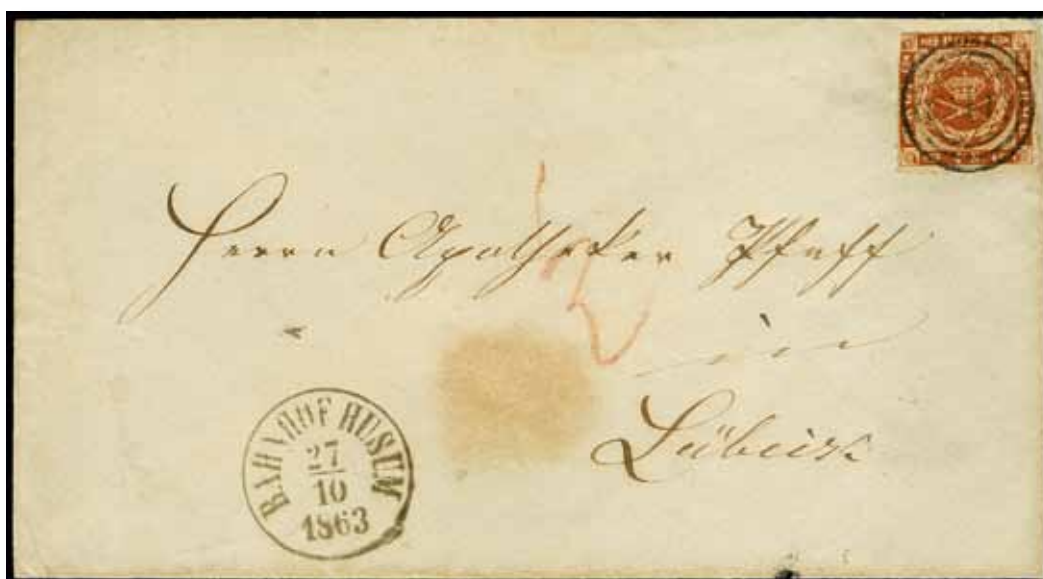 Herrn Apotheker Pfaff
in
Lübeck
BAHNHOF HUSUM
27
10
1863